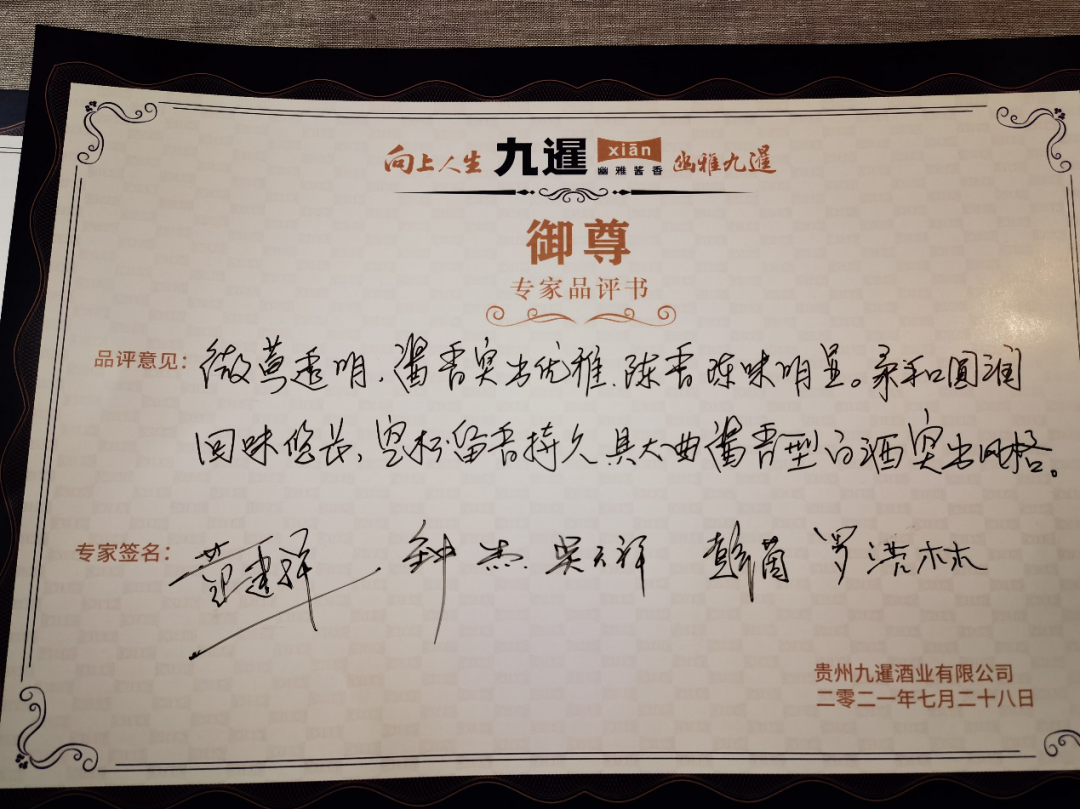 向上人生 九暹 xiān 幽雅酱香 幽雅九暹
御尊
专家品评书
品评意见：微黄透明，酱香突出优雅、陈香陈味明显。柔和圆润
回味悠长，空杯留香持久具大曲酱香型白酒突出风格。
专家签名： 范建祥 钟杰 吴天祥 彭茵 罗洪林
贵州九暹酒业有限公司
二零二一年七月二十八日